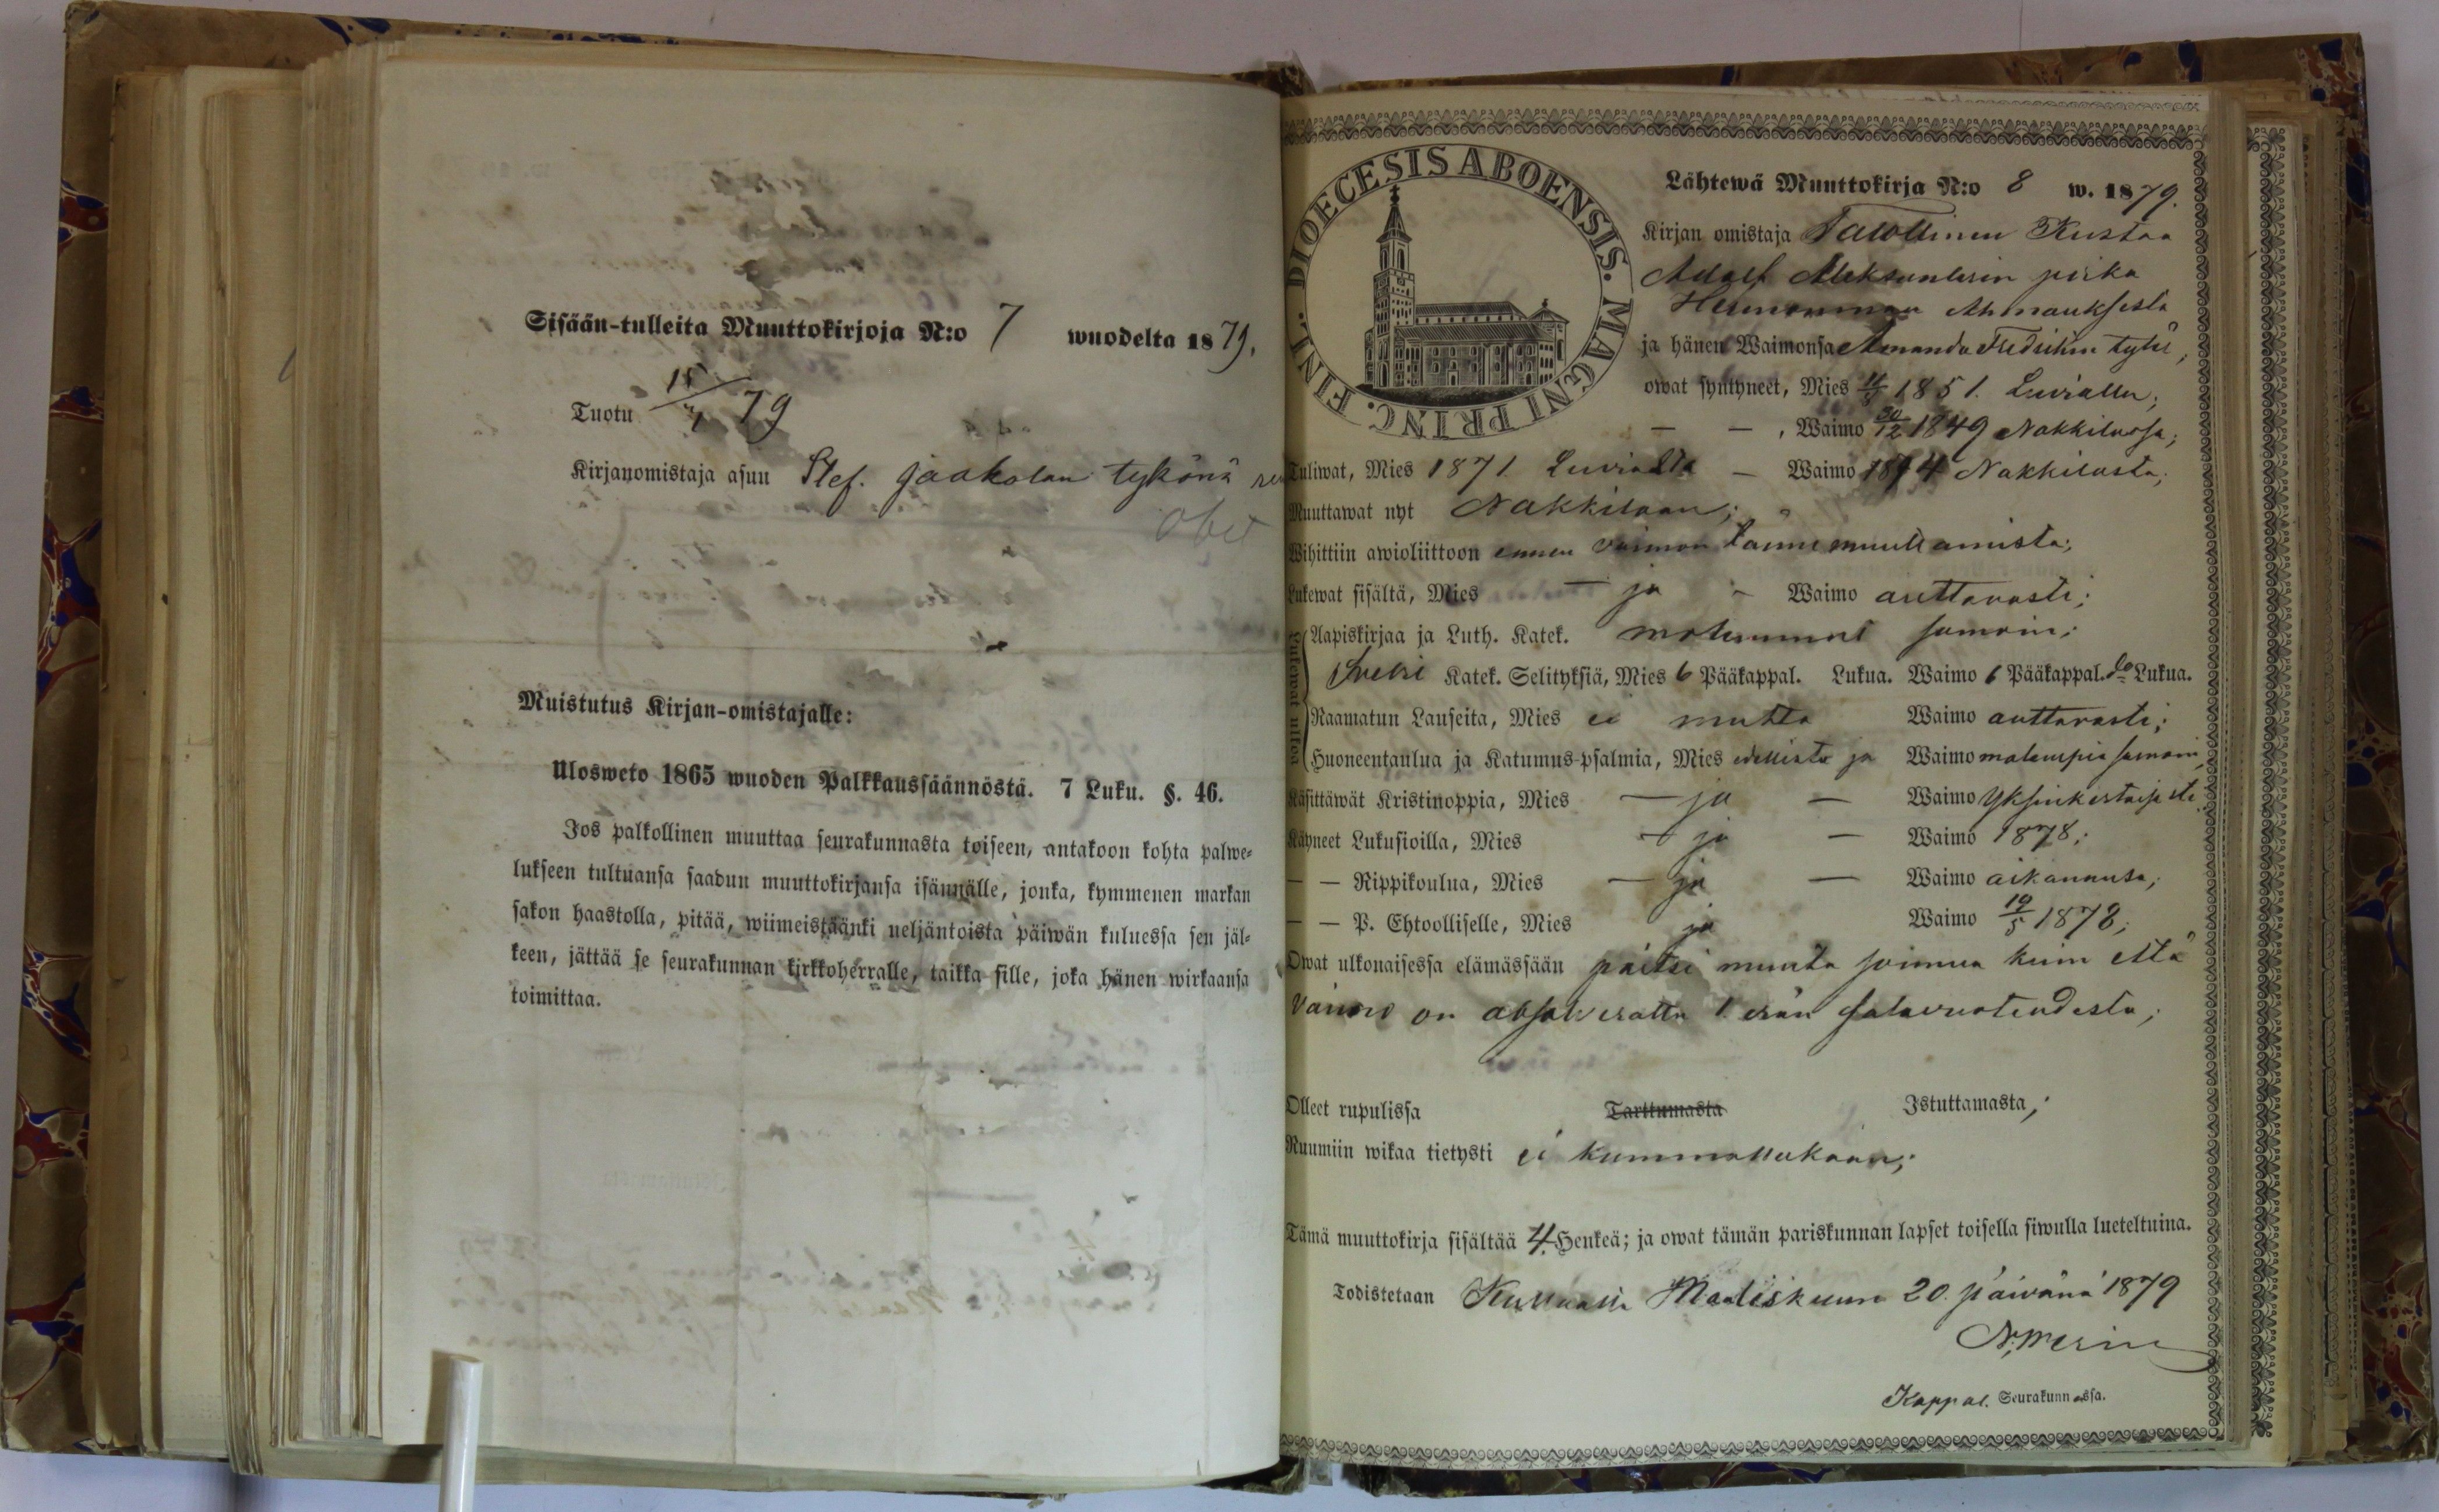 Sisään-tulleita Muuttokirjoja N:o 7 wuodelta 1879.
Tuotu 15/4 79
Kirjanomistaja asuu Stef. Jaakolan tykönä
Muistutus Kirjan-omistajalle:
Ulosweto 1865 wuoden Palkkaussäännöstä. 7 Luku. §. 46.
Jos palkollinen muuttaa seurakunnasta toiseen, antakoon kohta palwe-
lukseen tultuansa saadun muuttokirjansa isännälle, jonka, kymmenen markan
sakon haastolla, pitää, wiimeistäänki neljäntoista päiwän kuluessa sen jäl-
keen, jättää se seurakunnan kirkkoherralle, taikka sille, joka hänen wirkaansa
toimittaa.
DIOECESIS ABOENSIS. MAGNI PRINC. FINL.
Lähtewä Muuttokirja N:o 8 w. 1879.
Kirjan omistaja Talollinen Kustaa
Adolf Aleksanterin poika
Ahmauksesta
ja hänen Waimonsa Amanda Fredrikin tytär,
owat syntyneet, Mies 1851. Luvialla;
— — , Waimo 30/12 1849 Nakkilassa;
Tuliwat, Mies 1871 Luvialta — Waimo 1874 Nakkilasta;
Muuttawat nyt Nakkilaan;
Wihittiin awioliittoon ennen vaimon tänne muuttamista;
Lukewat sisältä, Mies — ja — Waimo auttavasti;
Lukewat ulkoa
Aapiskirjaa ja Luth. Katek. molemmat samoin;
Svebi Katek. Selityksiä, Mies 6 Pääkappal. Lukua. Waimo 6 Pääkappal. do Lukua.
Raamatun Lauseita, Mies ei mutta Waimo auttavasti;
Huoneentaulua ja Katumus-psalmia, Mies edellistä ja Waimo molempia samoin;
Käsittäwät Kristinoppia, Mies — ja — Waimo Yksinkertaisesti;
Käyneet Lukusioilla, Mies — ja — Waimo 1878;
— — Rippikoulua, Mies — ja — Waimo aikanansa;
— — P. Ehtoolliselle, Mies ja Waimo 19/5 1878;
Owat ulkonaisessa elämässään paitsi muuta soimua kuin että
Vaimo on absolverattu 1. erän salavuoteudesta;
Olleet rupulissa Tarttumasta Istuttamasta;
Ruumiin wikaa tietysti ei kummallakaan;
Tämä muuttokirja sisältää 4 Henkeä; ja owat tämän pariskunnan lapset toisella siwulla lueteltuina.
Todistetaan Kullaalla Maaliskuun 20. päivänä 1879
Kappal. Seurakunnassa.